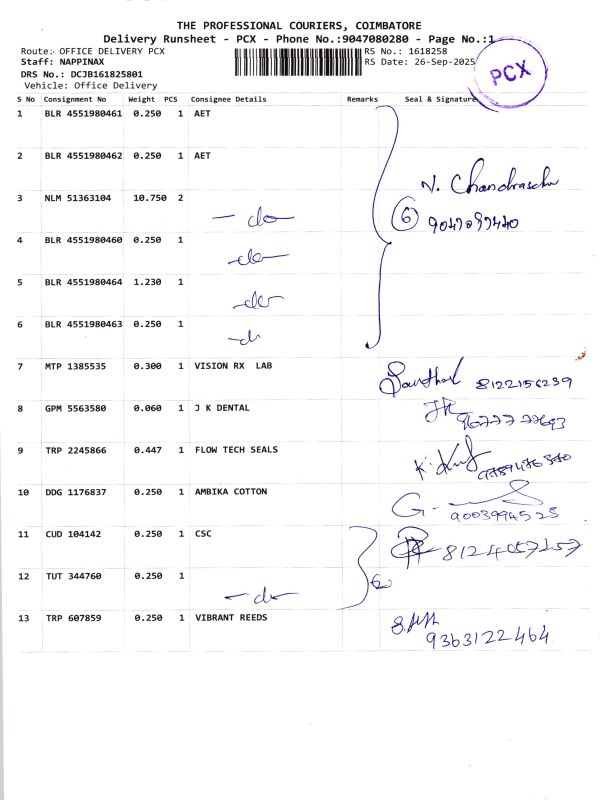 THE PROFESSIONAL COURIERS, COIMBATORE
Delivery Runsheet - PCX - Phone No.:9047080280 - Page No.:1
Route:- OFFICE DELIVERY PCX
RS No.: 1618258
Staff: NAPPINAX
RS Date: 26-Sep-2025
DRS No.: DCJB161825801
Vehicle: Office Delivery
PCX
S No Consignment No Weight PCS Consignee Details Remarks Seal & Signature
1 BLR 4551980461 0.250 1 AET
2 BLR 4551980462 0.250 1 AET
N. Chandrasekar
3 NLM 51363104 10.750 2 - do -
6
4 BLR 4551980460 0.250 1 -do-
5 BLR 4551980464 1.230 1 -do-
6 BLR 4551980463 0.250 1 -do-
7 MTP 1385535 0.300 1 VISION RX LAB
8122156239
8 GPM 5563580 0.060 1 J K DENTAL
9 TRP 2245866 0.447 1 FLOW TECH SEALS
10 DDG 1176837 0.250 1 AMBIKA COTTON
9003994523
11 CUD 104142 0.250 1 CSC
8124057257
12 TUT 344760 0.250 1 -do-
13 TRP 607859 0.250 1 VIBRANT REEDS
9363122464